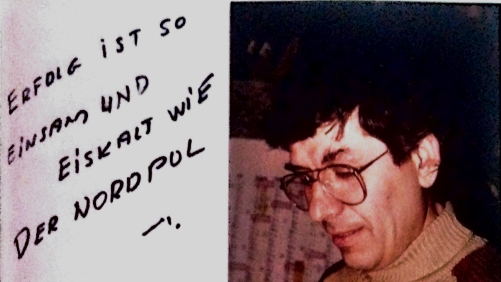 ERFOLG iST SO
EiNSAM UND
EiSKALT WiE
DER NORDPOL